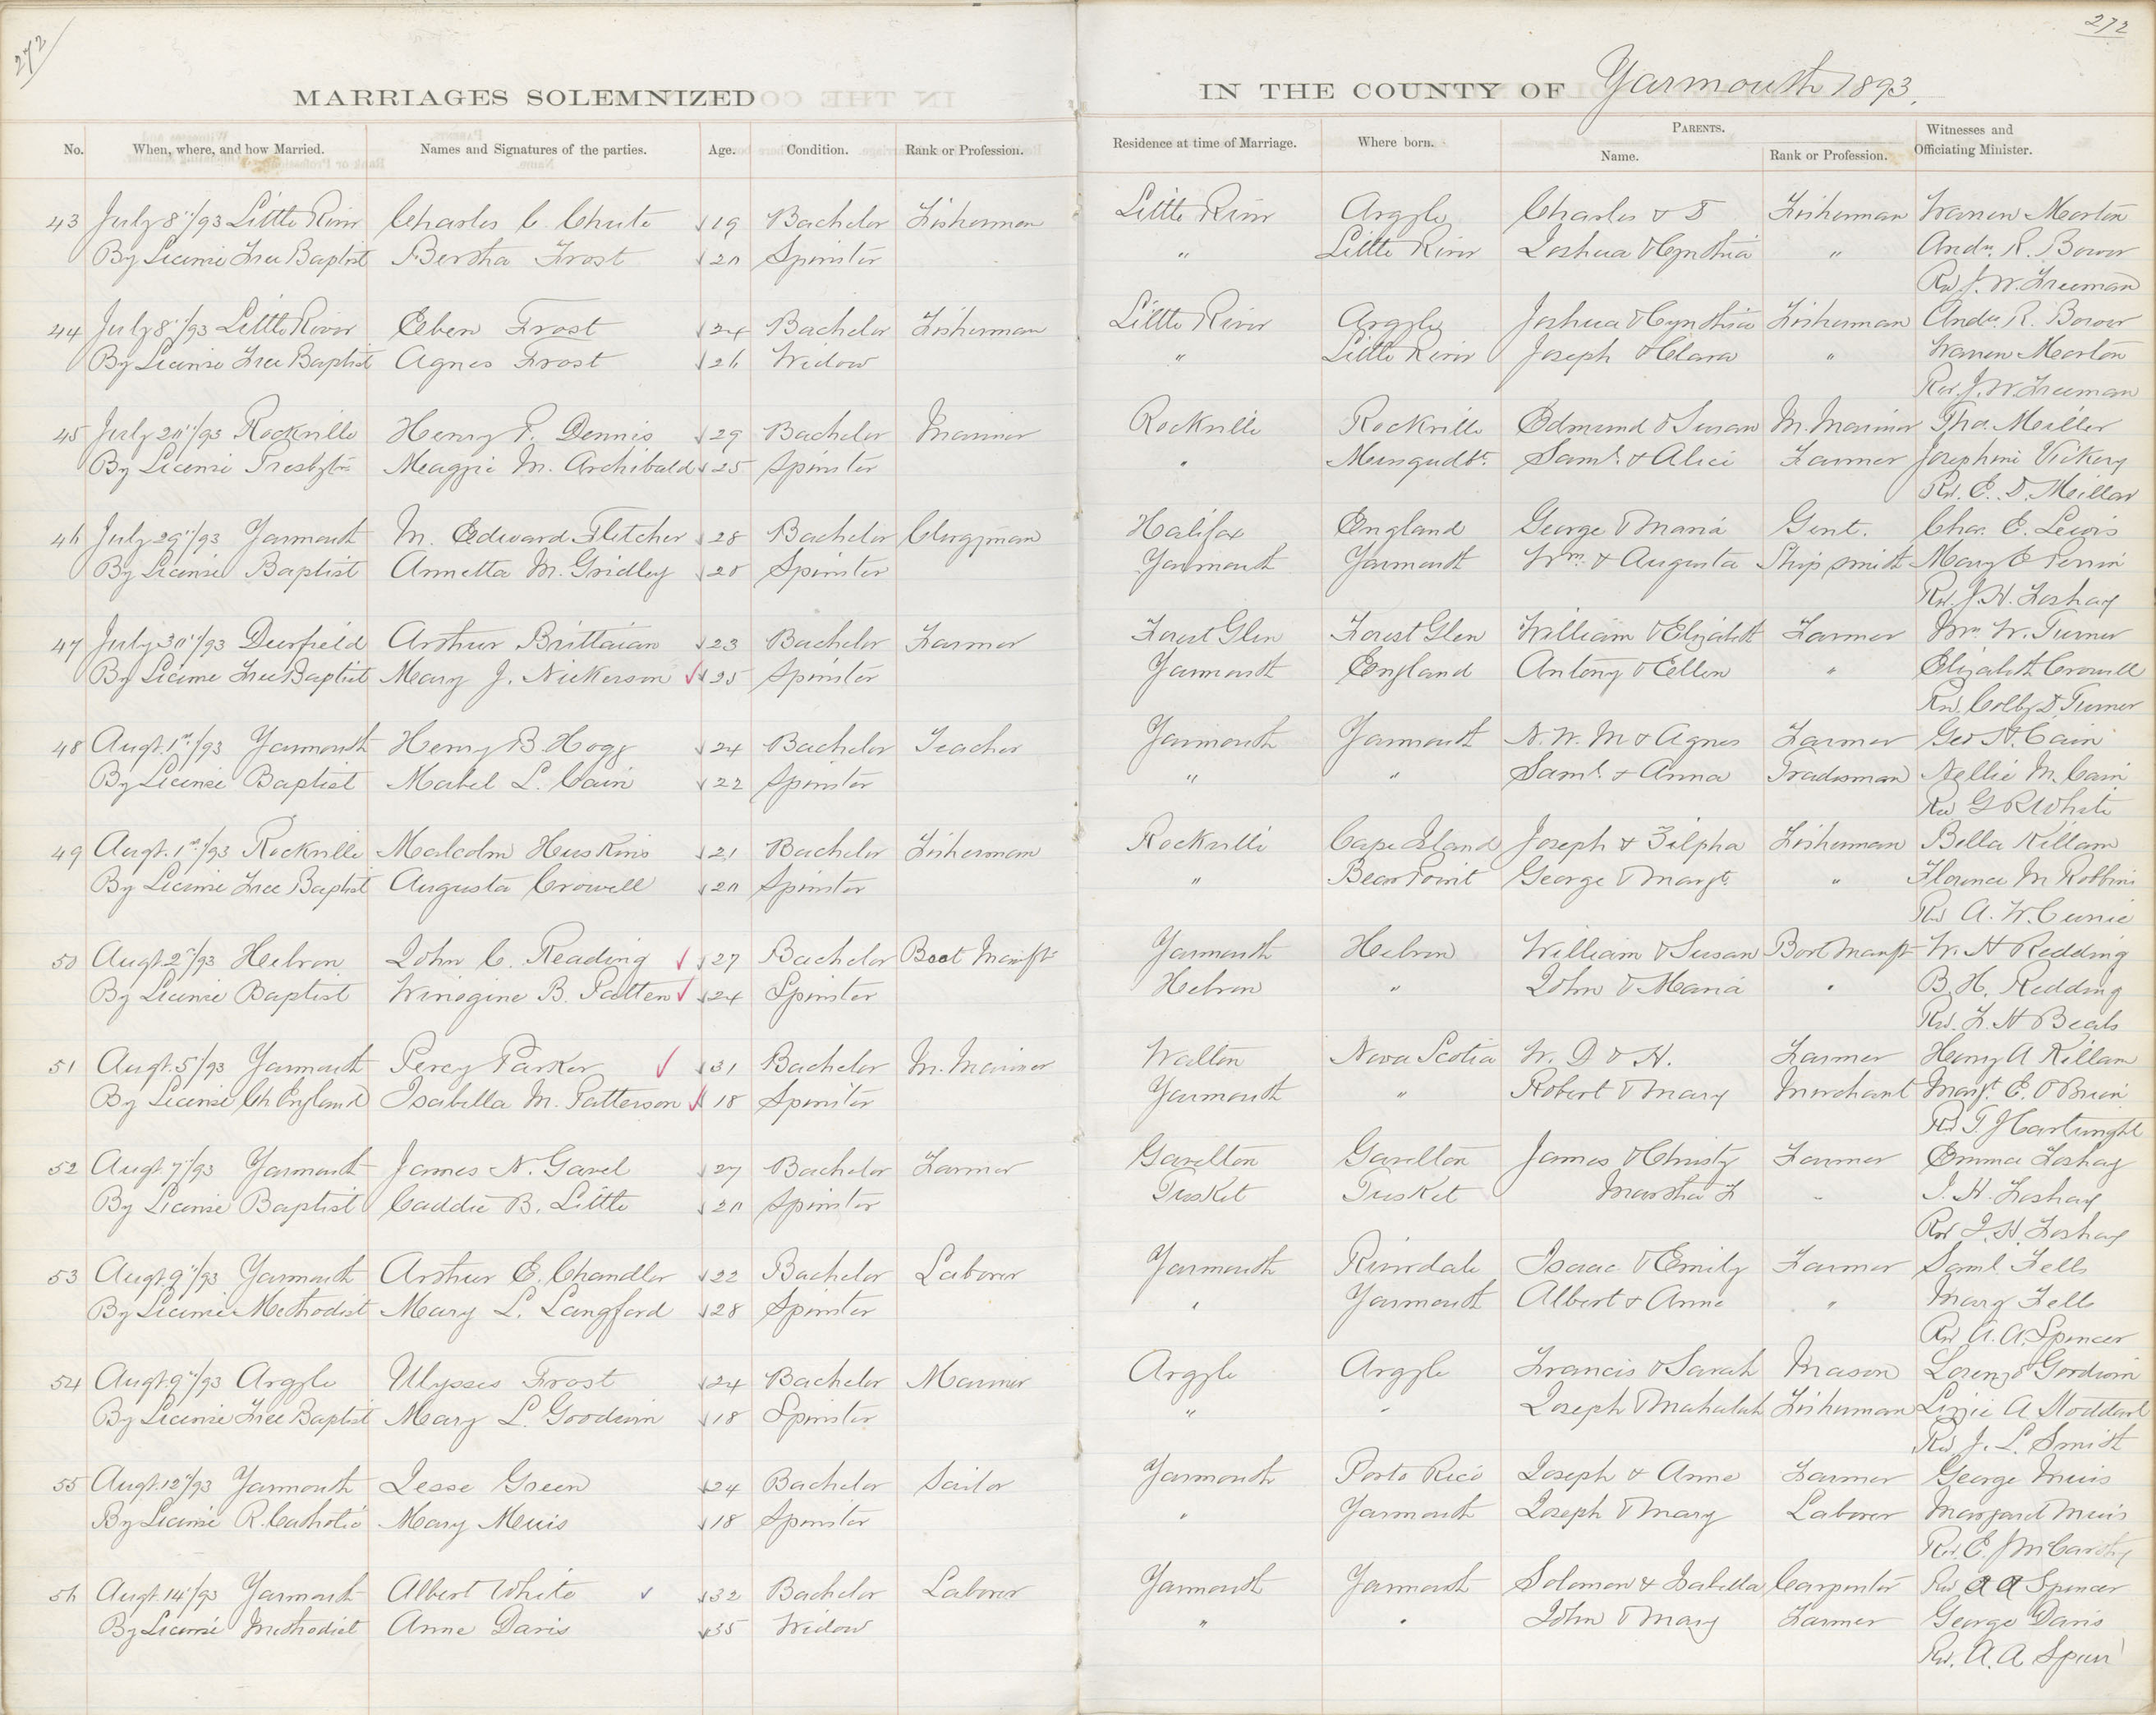 272
272
MARRIAGES SOLEMNIZED IN THE COUNTY OF Yarmouth 1893.
No. When, where, and how Married. Names and Signatures of the parties. Age. Condition. Rank or Profession. Residence at time of Marriage. Where born. PARENTS. Name. Rank or Profession. Witnesses and Officiating Minister.
43 July 8"/93 Little River Charles C. Chute 19 Bachelor Fisherman Little River Argyle Charles & D Fisherman Warren Morton
By License Free Baptist Bertha Frost 20 Spinster " Little River Joshua & Cynthia " Andw. R. Bower
Rev J. W. Freeman
44 July 8"/93 Little River Eben Frost 24 Bachelor Fisherman Little River Argyle Joshua & Cynthia Fisherman Andw. R. Bower
By License Free Baptist Agnes Frost 26 Widow " Little River Joseph & Clara " Warren Morton
Rev. J. W. Freeman
45 July 20"/93 Rockville Henry P. Dennis 29 Bachelor Mariner Rockville Rockville Edmund & Susan M. Mariner Tho Miller
By License Presbytn Maggie M. Archibald 25 Spinster " Musquodbt. Saml. & Alice Farmer Josephine Vickery
Rev. E. D. Millar
46 July 29"/93 Yarmouth M. Edward Fletcher 28 Bachelor Clergyman Halifax England George & Maria Gent. Chas. E. Lewis
By License Baptist Annetta M. Gridley 20 Spinster Yarmouth Yarmouth Wm. & Augusta Ship smith Mary E Perrin
Rev. J. H. Foshay
47 July 30"/93 Deerfield Arthur Brittaian 23 Bachelor Farmer Forest Glen Forest Glen William & Elizabeth Farmer Wm. W. Turner
By License Free Baptist Mary J. Nickerson 25 Spinster Yarmouth England Antony & Ellen " Elizabeth Crowell
Rev. Colby D. Turner
48 Augt. 1st/93 Yarmouth Henry B. Hogg 24 Bachelor Teacher Yarmouth Yarmouth N. W. M & Agnes Farmer Geo H. Cain
By License Baptist Mabel L. Cain 22 Spinster " " Saml. & Anna Tradesman Nellie M. Cain
Rev G R White
49 Augt. 1st/93 Rockville Malcolm Huskins 21 Bachelor Fisherman Rockville Cape Island Joseph & Zilpha Fisherman Bella Killam
By License Free Baptist Augusta Crowell 20 Spinster " Bear Point George & Margt. " Florence M Robbins
Rev A. W. Currie
50 Augt. 2"/93 Hebron John C. Reading 27 Bachelor Boot Manft Yarmouth Hebron William & Susan Boot Manft W. H Redding
By License Baptist Winogine B. Patten 24 Spinster Hebron " John & Maria " B. H. Redding
Rev. F. H Beals
51 Augt. 5"/93 Yarmouth Percy Parker 31 Bachelor M. Mariner Walton Nova Scotia W. D & H. Farmer Henry A Killam
By License Ch England Isabella M. Patterson 18 Spinster Yarmouth " Robert & Mary Merchant Margt. E. O'Brien
Rev T J Cartwright
52 Augt 7"/93 Yarmouth James N. Gavel 27 Bachelor Farmer Gavelton Gavelton James & Christy Farmer Emma Foshay
By License Baptist Caddie B. Little 20 Spinster Tusket Tusket Martha F " J. H. Foshay
Rev J. H. Foshay
53 Augt 9"/93 Yarmouth Arthur E. Chandler 22 Bachelor Laborer Yarmouth Riverdale Isaac & Emily Farmer Saml. Fells
By License Methodist Mary L. Langford 28 Spinster " Yarmouth Albert & Anne " Mary Fells
Rev A. A. Spencer
54 Augt. 9"/93 Argyle Ulysses Frost 24 Bachelor Mariner Argyle Argyle Francis & Sarah Mason Lorenzo Goodwin
By License Free Baptist Mary L. Goodwin 18 Spinster " " Joseph & Mahalah Fisherman Lizzie A Stoddard
Rev J. L. Smith
55 Augt. 12"/93 Yarmouth Jesse Green 24 Bachelor Sailor Yarmouth Porto Rico Joseph & Anne Farmer George Muis
By License R. Catholic Mary Muis 18 Spinster " Yarmouth Joseph & Mary Laborer Margaret Muis
Rev. E. J McCarthy
56 Augt. 14"/93 Yarmouth Albert White 32 Bachelor Laborer Yarmouth Yarmouth Solomon & Isabella Carpenter Rev A A Spencer
By License Methodist Anne Davis 35 Widow " " John & Mary Farmer George Davis
Rev. A. A Spen